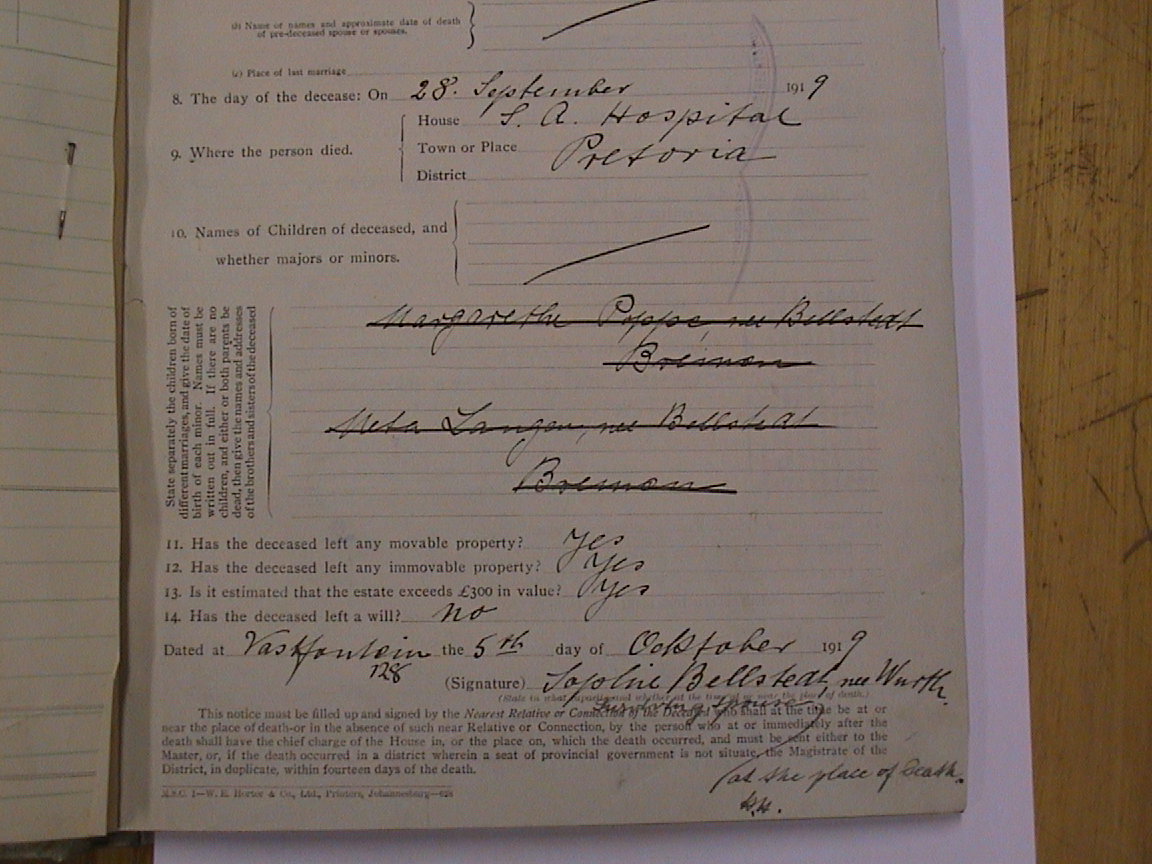 (b) Name or names and approximate date of death
of pre-deceased spouse or spouses.
(c) Place of last marriage
8. The day of the decease: On 28. September 1919
9. Where the person died.
House S. A. Hospital
Town or Place Pretoria
District
10. Names of Children of deceased, and
whether majors or minors.
State separately the children born of
different marriages, and give the date of
birth of each minor. Names must be
written out in full. If there are no
children, and either or both parents be
dead, then give the names and addresses
of the brothers and sisters of the deceased
Margarethe Poppe, nee Bellstedt
Bremen
Meta Langen, nee Bellstedt
Bremen
11. Has the deceased left any movable property? Yes
12. Has the deceased left any immovable property? Yes
13. Is it estimated that the estate exceeds £300 in value? Yes
14. Has the deceased left a will? no
Dated at Vastfontein the 5th day of Ocktober 1919
128
(Signature) Sophie Bellstedt nee Wurth.
(State in what capacity and whether at the time at or near the place of death.)
Surviving spouse
This notice must be filled up and signed by the Nearest Relative or Connection of the Deceased who shall at the time be at or
near the place of death-or in the absence of such near Relative or Connection, by the person who at or immediately after the
death shall have the chief charge of the House in, or the place on, which the death occurred, and must be sent either to the
Master, or, if the death occurred in a district wherein a seat of provincial government is not situate, the Magistrate of the
District, in duplicate, within fourteen days of the death.
(at the place of Death.
M.S.C. 1—W. E. Hortor & Co., Ltd., Printers, Johannesburg—